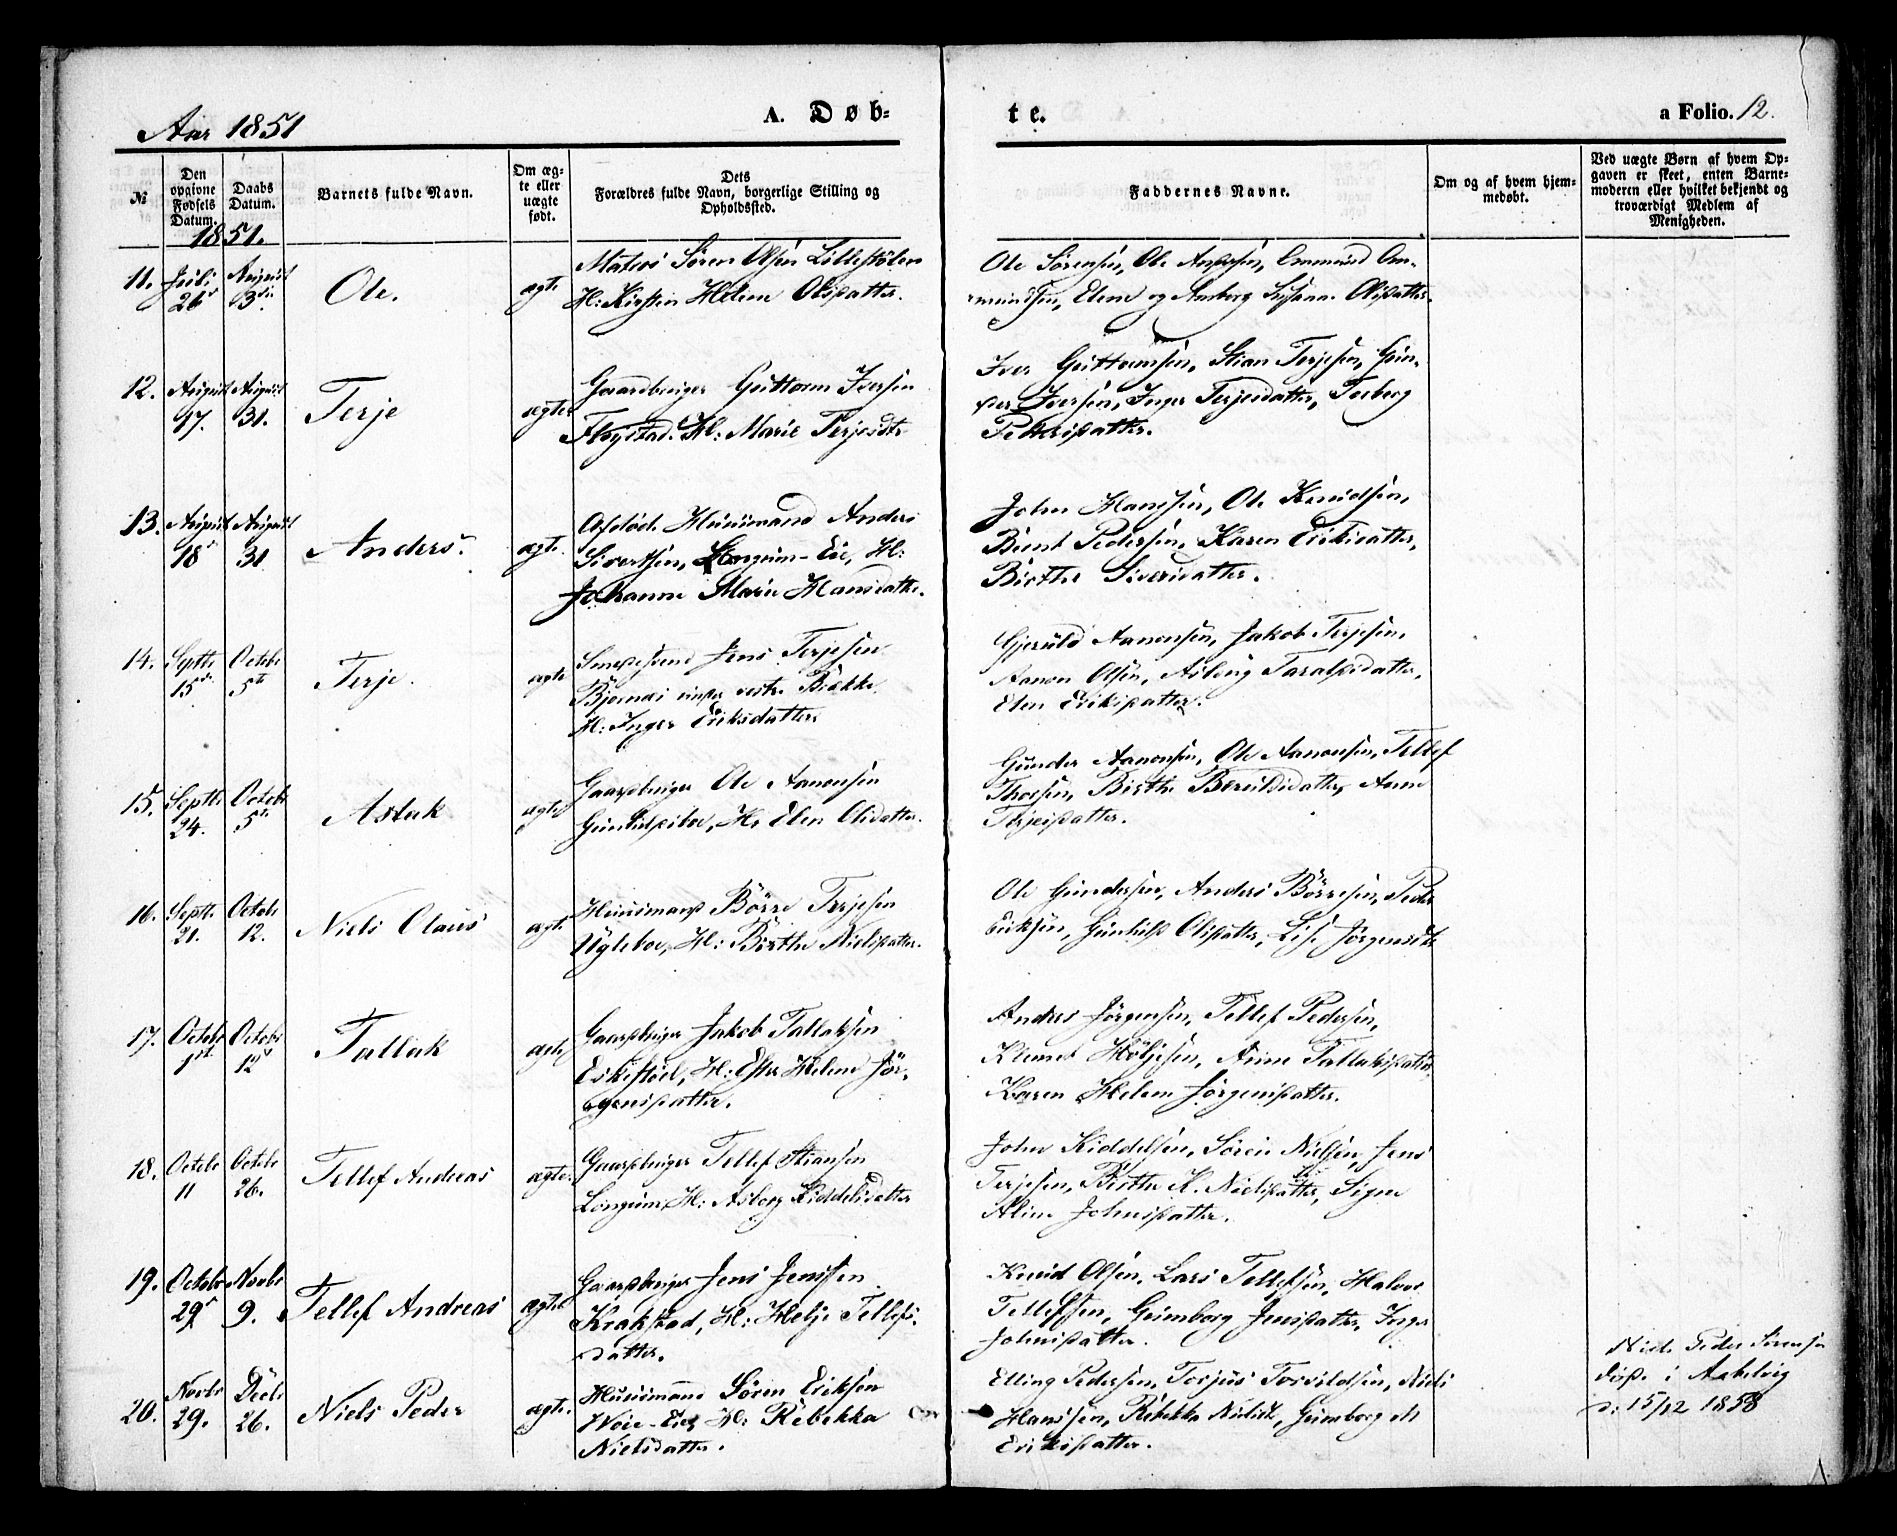 Aar 1851
A. Døb-
te.
a Folio. 12.
№
Den opgivne Fødsels Datum.
Daabs Datum.
Barnets fulde Navn.
Om ægte eller uægte født.
Dets Forældres fulde Navn, borgerlige Stilling og Opholdssted.
Faddernes Navne.
Om og af hvem hjemmedøbt.
Ved uægte Børn af hvem Opgaven er skeet, enten Barnemoderen eller hvilket bekjendt og troværdigt Medlem af Menigheden.
1851.
11. Juli 26 August 3die Ole. ægte
Matros Sören Olsen Lillestölen
H: Kirstin Helene Olsdatter.
Ole Sörensen, Ole Andersen, Emmund Em-
mundsen, Elene og Anborg Susanne Olsdatter
12. August 17. August 31. Terje ægte
Gaardbruger Guttorm Iversen
Flagstad. H: Marie Terjesdtr
Iver Guttormsen, Stian Terjesen, Gun-
der Iversen, Inger Terjesdatter, Torborg
Pettersdatter.
13. August 18 August 31 Anders. ægte
Afdöde Huusmand Anders
Sivertsen, Longum-Eie, H:
Johanne Marie Hansdatter.
John Hanssen, Ole Knudsen,
Bernt Pedersen, Karen Eriksdatter,
Birthe Siversdatter.
14. Septbr 15de Octobr 5te Terje. ægte
Smedsvend Jens Terjesen
Bjornæs under vestre Bække
H: Inger Eriksdatter
Gjeruld Aanonsen, Jakob Terjesen,
Aanon Olsen, Asborg Taraldsdatter,
Elen Eriksdatter.
15. Septbr 24. Octobr 5te Aslak ægte
Gaardbruger Ole Aanonsen
Gunhildsboe, H: Elen Olsdatter.
Gunder Aanonsen, Ole Aanonsen, Tellef
Thorsen, Birthe Berulsdatter, Anne
Terjesdatter.
16. Septbr 21. Octobr 12. Niels Olaus ægte
Huusmand Börre Terjesen
Ugleboe, H: Birthe Nielsdatter.
Ole Gundersen, Anders Börresen, Peder
Eriksen, Gunhild Olsdatter, Lise Jörgensdtr
17. Octobr 1st Octobr 12 Tallak ægte
Gaardbruger Jakob Tallaksen
Eskestöel, H: Ester Helene Jör-
gensdatter.
Anders Jörgensen, Tellef Pedersen,
Klemet Höljesen, Anne Tallaksdatter
Karen Helene Jörgensdatter.
18. Octobr 11 Octobr 26. Tellef Andreas ægte
Gaardbruger Tellef Stiansen
Longum, H: Asborg Kiddelsdatter
John Kiddelsen, Sören Nielsen, Jens
Terjesen, Birthe K. Nielsdatter, Signe
Aline Johnsdatter.
19. Octobr 29 Novbr 9. Tellef Andreas ægte
Gaardbruger Jens Jenssen
Krakstad, H: Helje Tellefs-
datter.
Knud Olsen, Lars Tellefsen, Halvor
Tellefsen, Gumborg Jensdatter, Inger
Johnsdatter.
20. Novbr 29. Decbr 26. Niels Peder ægte
Huusmand Sören Eriksen
Woie-Eie, H: Rebekka
Nielsdatter.
Elling Pedersen, Torjus Torvildsen, Niels
Hanssen, Rebekka Nielsdtr, Gumborg M
Eriksdatter.
Niels Peder Sörensen
döde i Askevig
d: 15/12 1858